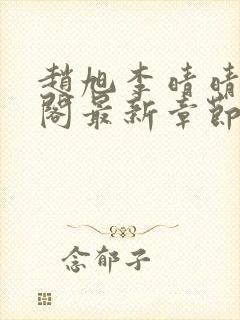 趙旭李晴晴
閣最新章節
念郁子